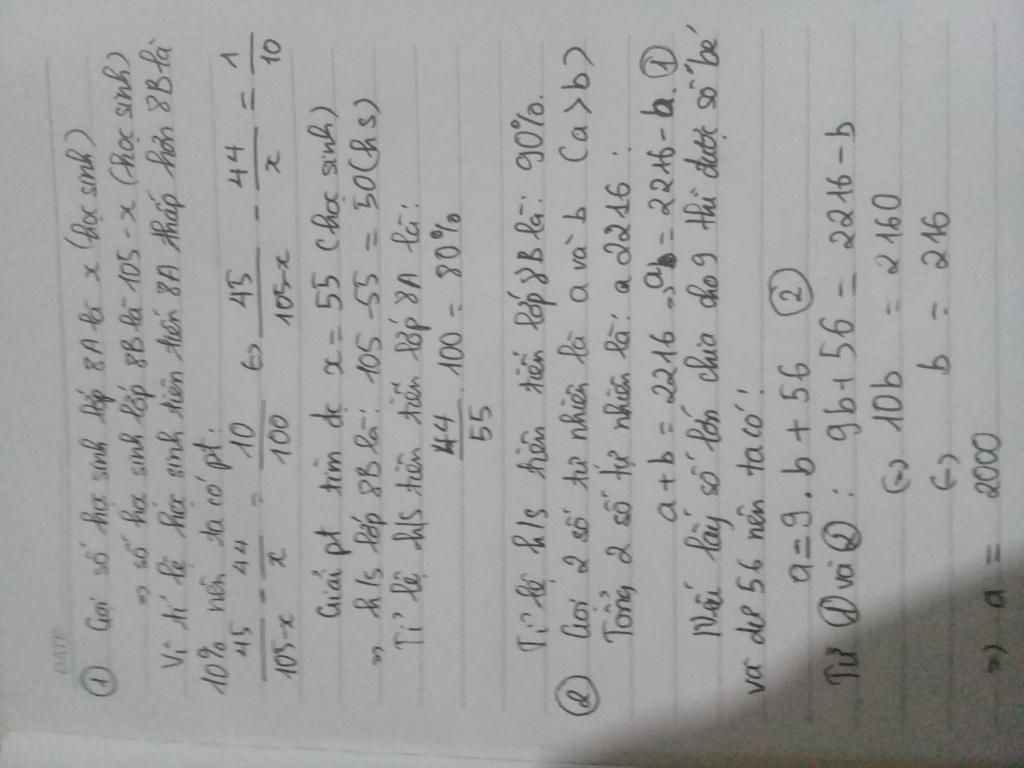 DATE
① Gọi số học sinh lớp 8A là x (học sinh)
⇒ số học sinh lớp 8B là 105 - x (học sinh)
Vì tỉ lệ học sinh tiên tiến 8A thấp hơn 8B là
10% nên ta có pt:
45/105-x - 44/x = 10/100 (=) 45/105-x - 44/x = 1/10
Giải pt tìm đc x = 55 (học sinh)
⇒ h/s lớp 8B là: 105 - 55 = 50 (hs)
Tỉ lệ h/s tiên tiến lớp 8A là:
44/55 . 100 = 80%
Tỉ lệ h/s tiên tiến lớp 8B là: 90%.
② Gọi 2 số tự nhiên là a và b (a > b)
Tổng 2 số tự nhiên là: 2216.
a + b = 2216 ⇒ a = 2216 - b. ①
Nếu lấy số lớn chia cho 9 thì được số bé
và dư 56 nên ta có:
a = 9. b + 56 ②
Từ ① và ②: 9b + 56 = 2216 - b
(=) 10b = 2160
(=) b = 216
=) a = 2000